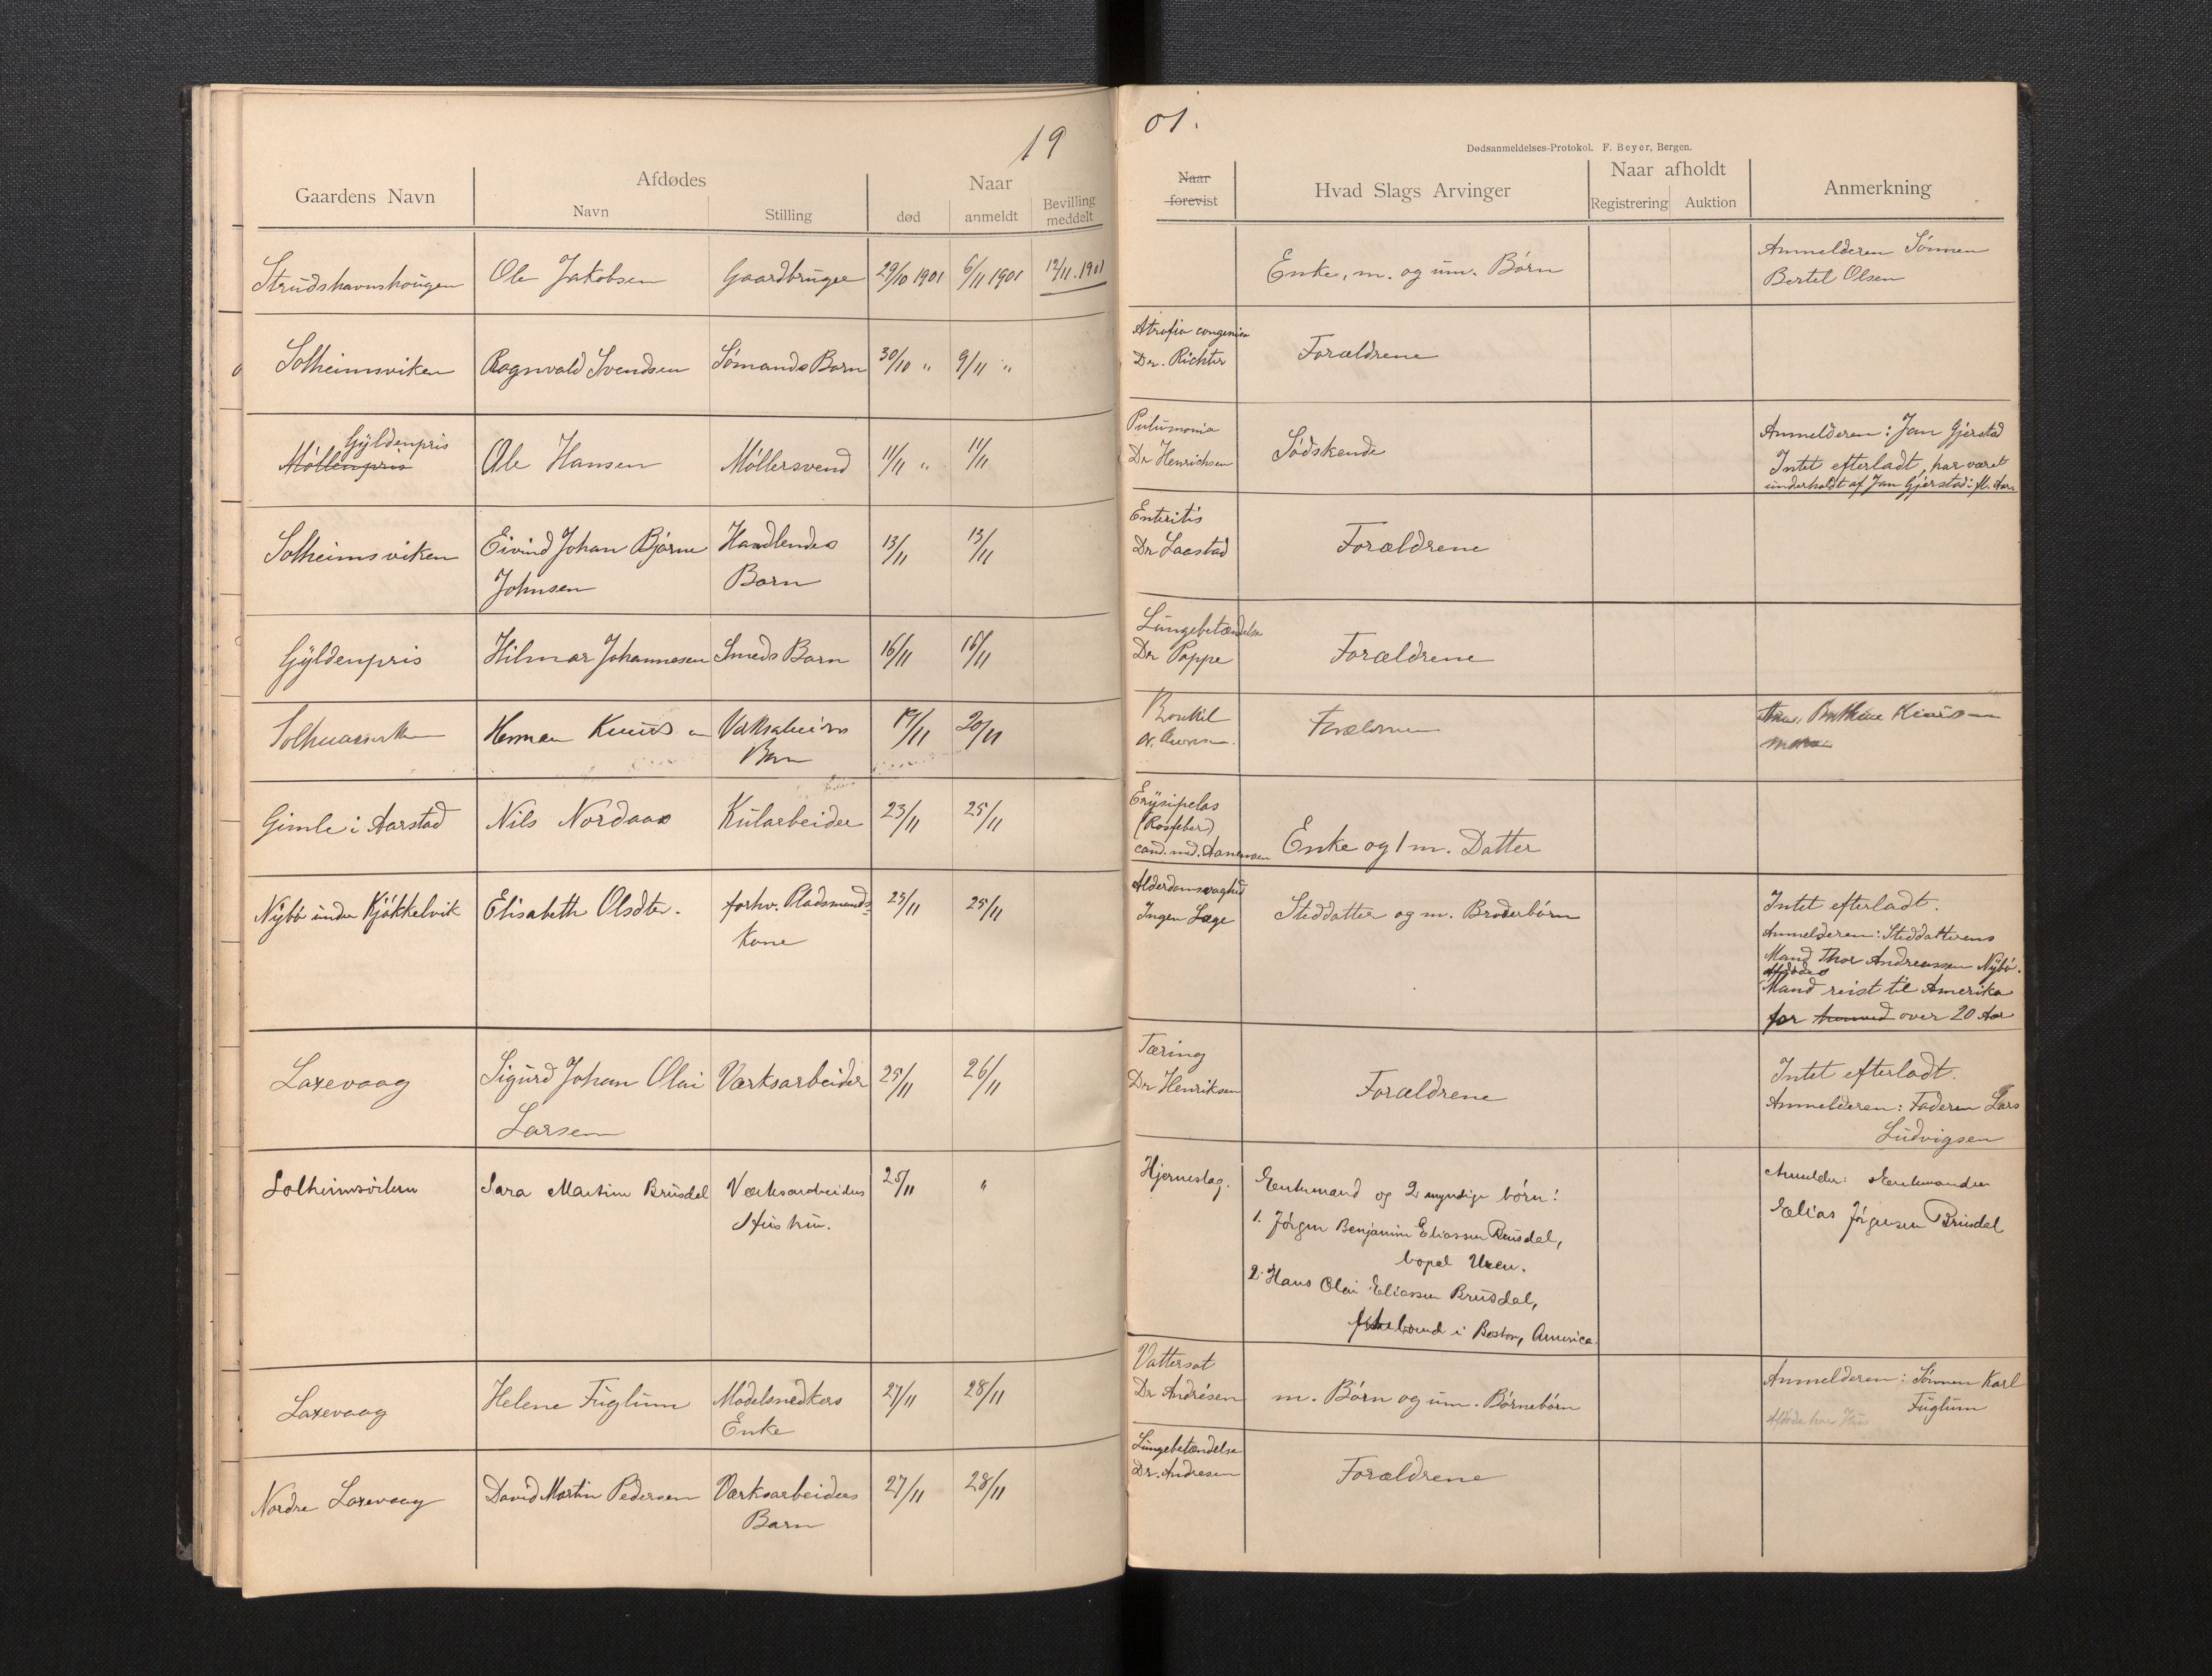 19
01.
Dødsanmeldelses-Protokol. F. Beyer, Bergen.
Gaardens Navn
Afdødes
Navn
Stilling
Naar
død
anmeldt
Bevilling meddelt
Naar forevist
Hvad Slags Arvinger
Naar afholdt
Registrering
Auktion
Anmerkning
Strudshavnshougen
Ole Jakobsen
Gaardbruger
29/10 1901
6/11 1901
12/11. 1901
Enke, m. og um. Børn
Anmelderen Sønnen
Bertel Olsen
Solheimsviken
Ragnvald Svendsen
Sømands Barn
30/10 "
9/11 "
Atrofia congenisa
Dr. Richter
Forældrene
Gyldenpris
Møllenpris
Ole Hansen
Møllersvend
11/11 "
11/11
Dr Henrichsen
Sødskende
Anmelderen: Jan Gjerstad
Intet efterladt, har været
underholdt af Jan Gjerstad i fl. Aar.
Solheimsviken
Eivind Johan Bjarne
Johnsen
Handlendes
Barn
13/11
13/11
Enteritis
Dr Laastad
Forældrene
Gyldenpris
Hilmar Johannesen
Smeds Barn
16/11
16/11
Lungebetændelse
Dr Poppe
Forældrene
Herman
Barn
20/11
Forældrene
Gimle i Aarstad
Nils Nordaas
Kularbeider
23/11
25/11
Erysipelas
(Rosfeber)
cand. med. Aanensen
Enke og 1 m. Datter
Nybø under Kjøkkelvik
Elisabeth Olsdter.
forhv. Pladsmands
Kone
23/11
25/11
Alderdomssvaghed
Ingen Læge
Steddatter og m. Broderbørn
Intet efterladt.
Anmelderen: Steddatterens
Mand Thor Andreassen Nybø.
Afdødes
Mand reist til Amerika
for henved over 20 Aar
Laxevaag
Sigurd Johan Olai
Larsen
Værksarbeider
25/11
26/11
Tæring
Dr Henriksen
Forældrene
Intet efterladt.
Anmelderen: Faderen Lars
Ludvigsen
Solheimsviken
Sara Martine Brusdal
Værksarbeiders
Hustru.
25/11
"
Hjerneslag.
Enkemand og 2 myndige børn:
1. Jørgen Benjamin Eliassen Brusdal,
bopel Uren.
2. Hans Olai Eliassen Brusdal,
i Boston, America
Anmelder: Enkemanden
Elias Jørgensen Brusdal
Laxevaag
Helene Fuglum
Modelsnedkers
Enke
27/11
28/11
Vattersot
Dr Andrésen
m. Børn og um. Børnebørn
Anmelderen: Sønnen Karl
Fuglum
Afdøde har Hus
Nordre Laxevaag
David Martin Pedersen
Værksarbeiders
Barn
27/11
28/11
Lungebetændelse
Dr. Andresen
Forældrene